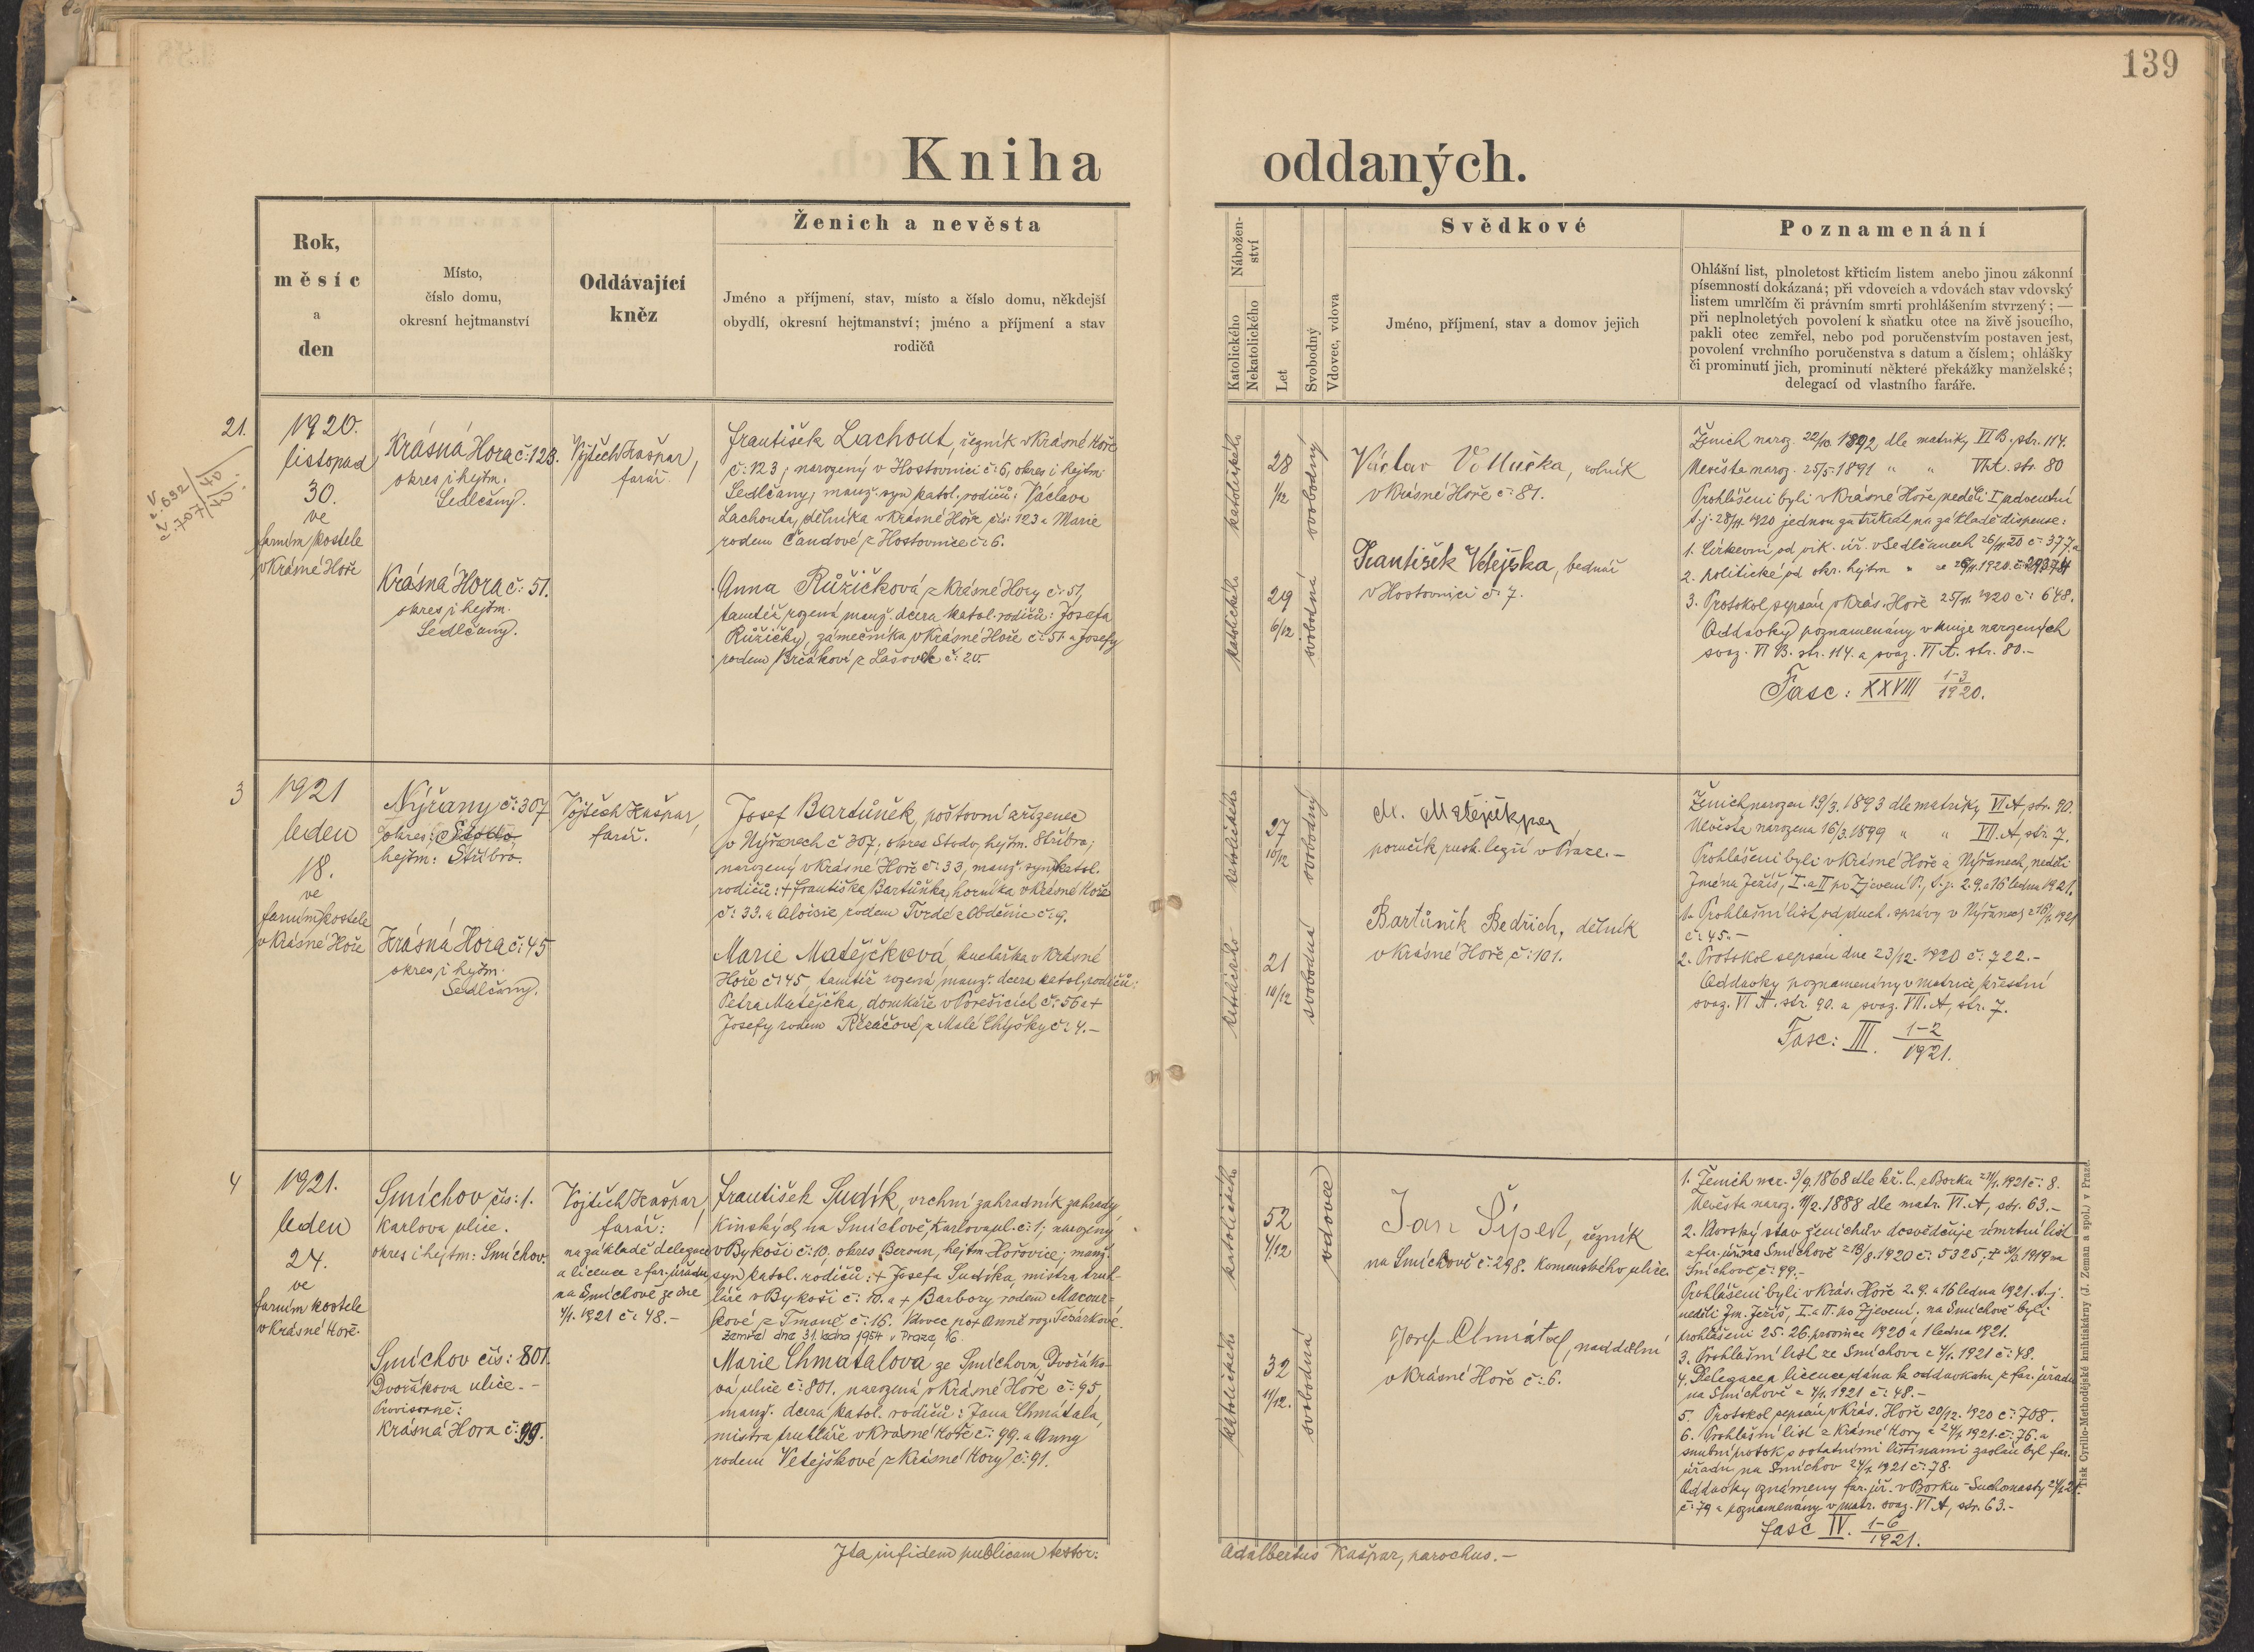 139
Kniha oddaných.
Rok,
měsíc
a
den
Místo,
číslo domu,
okresní hejtmanství
Oddávající
kněz
Ženich a nevěsta
Jméno a příjmení, stav, místo a číslo domu, někdejší
obydlí, okresní hejtmanství; jméno a příjmení a stav
rodičů
Nábožen-
ství
Katolického
Nekatolického
Let
Svobodný
Vdovec, vdova
Svědkové
Jméno, příjmení, stav a domov jejich
Poznamenání
Ohlášní list, plnoletost křticím listem anebo jinou zákonní
písemností dokázaná; při vdovcích a vdovách stav vdovský
listem umrlčím či právním smrti prohlášením stvrzený; —
při neplnoletých povolení k sňatku otce na živě jsoucího,
pakli otec zemřel, nebo pod poručenstvím postaven jest,
povolení vrchního poručenstva s datum a číslem; ohlášky
či prominutí jich, prominutí některé překážky manželské;
delegací od vlastního faráře.
21.
č. 692/40
č. 707/40
1920.
listopad
30.
ve
farním kostele
v Krásné Hoře
Krásná Hora č: 123.
okres i hejtm.
Sedlčany.
Krásná Hora č: 51.
okres i hejtm.
Sedlčany.
Vojtěch Kašpar,
farář.
František Lachout, řezník v Krásné Hoře
č: 123, narozený v Hostovnici č: 6, okres i hejtm.
Sedlčany, manž. syn katol. rodičů: Václava
Lachouta, dělníka v Krásné Hoře čís: 123 a Marie
rodem Čandové z Hostovnice č: 6.
Anna Růžičková z Krásné Hory č: 51,
tamtéž rozená manž. dcera katol. rodičů: Josefa
Růžičky, zámečníka v Krásné Hoře č: 51 a Josefy
rodem Brčákové z Lašovic č: 20.
katolického
28
1/12
svobodný
katolického
29
6/12
svobodná
Václav Vollučka, rolník
v Krásné Hoře č: 81.
František Vetejška, bednář
v Hostovnici č: 7.
Ženich naroz. 22/10. 1892, dle matriky VI B. str. 114.
Nevěsta naroz. 25/5. 1891 " " VI A. str. 80
Prohlášeni byli v Krásné Hoře neděli I. adventní
t. j. 28/11. 1920 jednou za třikrát na základě dispense:
1. Církevní od vik. úř. v Sedlčanech 26/11. 20 č: 377. a
2. politické od okr. hejtm " ze 26/11. 1920. č:
3. Protokol sepsán v Krás. Hoře 25/11. 1920 č: 648.
Oddavky poznamenány v knize narozených
svaz. VI B. str. 114. a svaz. VI A. str. 80.-
Fasc: XXVIII 1-3/1920.
3
1921
leden
18.
ve
farním kostele
v Krásné Hoře
Nýřany č: 307
okres: Stodo,
hejtm: Stříbro.
Krásná Hora č: 45
okres i hejtm.
Sedlčany.
Vojtěch Kašpar,
farář.
Josef Bartůněk, poštovní zřízenec
v Nýřanech č 307, okres Stodo, hejtm. Stříbro;
narozený v Krásné Hoře č: 33, manž. syn katol.
rodičů: + Františka Bartůňka, horníka v Krásné Hoře
č: 33. a Aloisie, rodem Tvrdé z Obděnic č: 9.
Marie Matějčková, kuchařka v Krásné
Hoře č: 45, tamtéž rozená, manž. dcera katol. rodičů:
Petra Matějčka, domkáře v Porešicích č: 56 a +
Josefy rodem Řezáčové z Malé Chyšky č: 4.-
katolického
27
10/12
svobodný
katolického
21
10/12
svobodná
M. Matějček
poručík rusk. legií v Praze.-
Bartůněk Bedřich, dělník
v Krásné Hoře, č: 101.
Ženich narozen 19/3. 1893 dle matriky VI. A, str. 90.
Nevěsta narozena 16/3. 1899 " " VII. A, str. 7.
Prohlášeni byli v Krásné Hoře a Nýřanech, neděli
Jména Ježíš, I. a II po Zjevení P., t. j. 2. 9. a 16 ledna 1921.
1. Prohlašní list od duch. správy v Nýřanech z 16/1. 1921
č: 45.-
2. Protokol sepsán dne 23/12. 1920 č: 722.-
Oddavky poznamenány v matrice křestní
svaz. VI A. str. 90. a svaz. VII. A, str. 7.
Fasc: III. 1-2/1921.
4
1921.
leden
24.
ve
farním kostele
v Krásné Hoře.
Smíchov, čís: 1.
Karlova ulice.
okres i hejtm: Smíchov.
Smíchov čís: 801.
Dvořákova ulice.-
Provisorně:
Krásná Hora č: 99.
Vojtěch Kašpar,
farář:
na základě delegace
a licence z far. úřadu
na Smíchově ze dne
4/1. 1921 č: 48.-
František Sudík, vrchní zahradník zahrady
Kinských na Smíchově, Karlova ul. č: 1; narozený
v Bykoši č: 10. okres Beroun, hejtm Hořovice; manž.
syn katol. rodičů: + Josefa Sudíka, mistra truh-
láře v Bykoši č: 10. a + Barbory rodem Macour-
kové z Tmaně č: 16. Vdovec po + Anně roz. Tesárkové.
Zemřel dne 31. ledna 1954 v Praze 16.
Marie Chmátalova ze Smíchova, Dvořáko-
vá ulice č: 801. narozená v Krásné Hoře č: 95,
manž. dcera katol. rodičů: Jana Chmátala,
mistra truhláře v Krásné Hoře č: 99. a Anny
rodem Vetejškové z Krásné Hory č: 91.
katolického
52
4/12
vdovec
katolického
32
11/12.
svobodná
Jan Šípek, řezník
na Smíchově č: 298. Komenského ulice.
Josef Chmátal, naddělní
v Krásné Hoře č: 6.
1. Ženich nar. 3/9. 1868 dle kř. l. z Borku 1921 č: 8.
Nevěsta naroz. 11/2. 1888 dle matr. VI. A, str. 63.-
2. Vdovský stav ženichův dosvědčuje úmrtní list
z far. úřadu na Smíchově z 13/8. 1920 č: 5325, + 1919 na
Smíchově č: 99.-
Prohlášeni byli v Krás. Hoře 2. 9. a 16 ledna 1921. t. j.
neděli Jm. Ježíš, I. a II. po Zjevení, na Smíchově byli
prohlášeni 25. 26. prosince 1920 a 1 ledna 1921.
3. Prohlašní list ze Smíchova z 4/1. 1921 č: 48.
4. Delegace a licence dána k oddavkám z far. úřadu
na Smíchově z 4/1. 1921 č: 48.-
5. Protokol sepsán v Krás. Hoře 20/12. 1920 č: 708.
6. Prohlašní list z Krásné Hory z 24/1. 1921. č: 76. a
snubní protok. s ostatními listinami zaslán byl far.
úřadu na Smíchov 24/1. 1921 č: 78.
Oddavky oznámeny far. úř. v Borku-Suchomasty 24/1. 21.
č: 79 a poznamenány v matr. svaz. VI. A, str. 63.-
Fasc IV. 1-6/1921.
Tisk Cyrillo-Methodějské knihtiskárny (J. Zeman a spol.) v Praze.
Ita in fidem publicam testor:
Adalbertus Kašpar, parochus.-